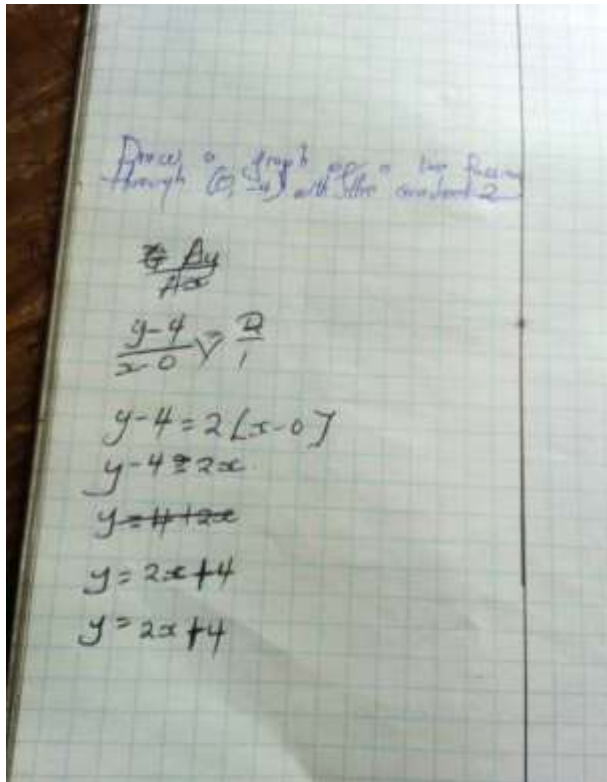 Draw a graph of a line Passing
through (0, 4) with the gradient 2
G Δy
Δx
y-4 = 2
x-0 1
y-4=2[x-0]
y-4=2x
y=4+2x
y=2x+4
y=2x+4